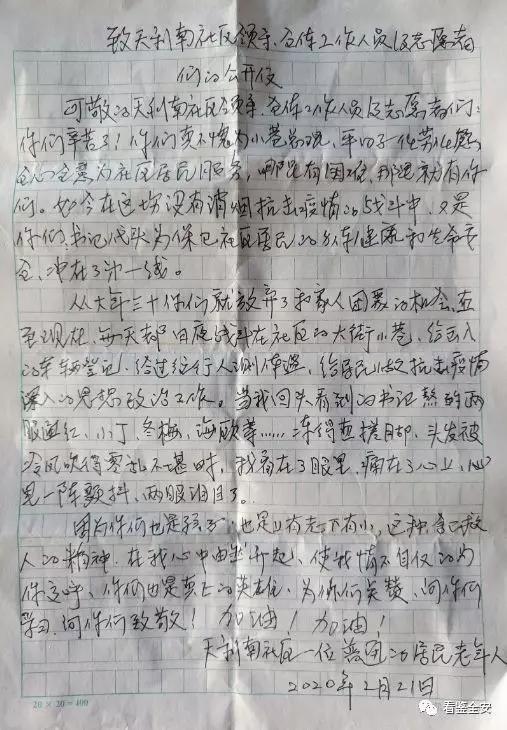 致天利南社区领导、全体工作人员及志愿者
们的公开信
可敬的天利南社区领导、全体工作人员及志愿者们:
你们辛苦了!你们真不愧为小巷总理,平日了任劳任怨
全心全意为社区居民服务,哪里有困难,那里就有你
们。如今在这场没有消烟抗击疫情的战斗中,又是
你们,书记代头为保卫社区居民的身体健康和生命安
全,冲在了第一线。
从大年三十你们就放弃了和家人团聚的机会,直
至现在,每天都日夜战斗在社区的大街小巷,给出入
的车辆登记,给过往行人测体温,给居民做抗击疫情
深入的思想政治工作。当我回头看到的书记熬的两
眼通红、小丁、冬梅、海欣等……冻得直搓脚、头发被
冷风吹得零乱不堪时,我看在了眼里,痛在了心上,心
里一阵颤抖,两眼泪目了。
因为你们也是孩子,也是上有老下有小,这种舍己救
人的精神,在我心中由然升起,使我情不自仅的为
你们,你们也是真正的英雄,为你们点赞,向你们
学习,向你们致敬!加油!加油!
天利南社区一位普通的居民老年人
2020年2月21日
20×20=400
看鉴全安